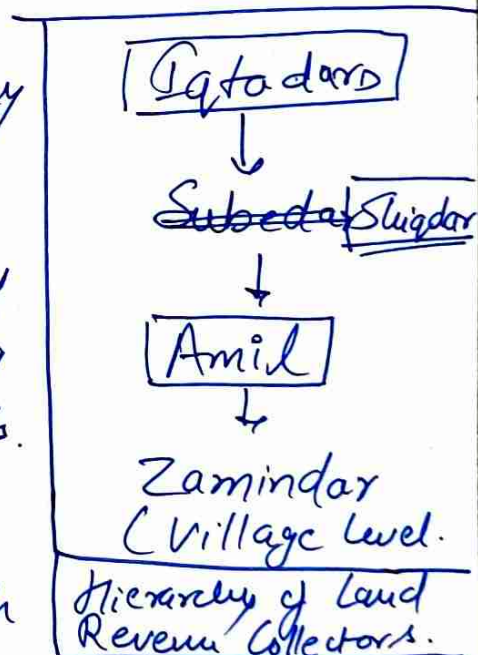 Iqtadars
Subedar Shiqdar
Amil
Zamindar
(Village level.
Hierarchy of Land
Revenu Collectors.